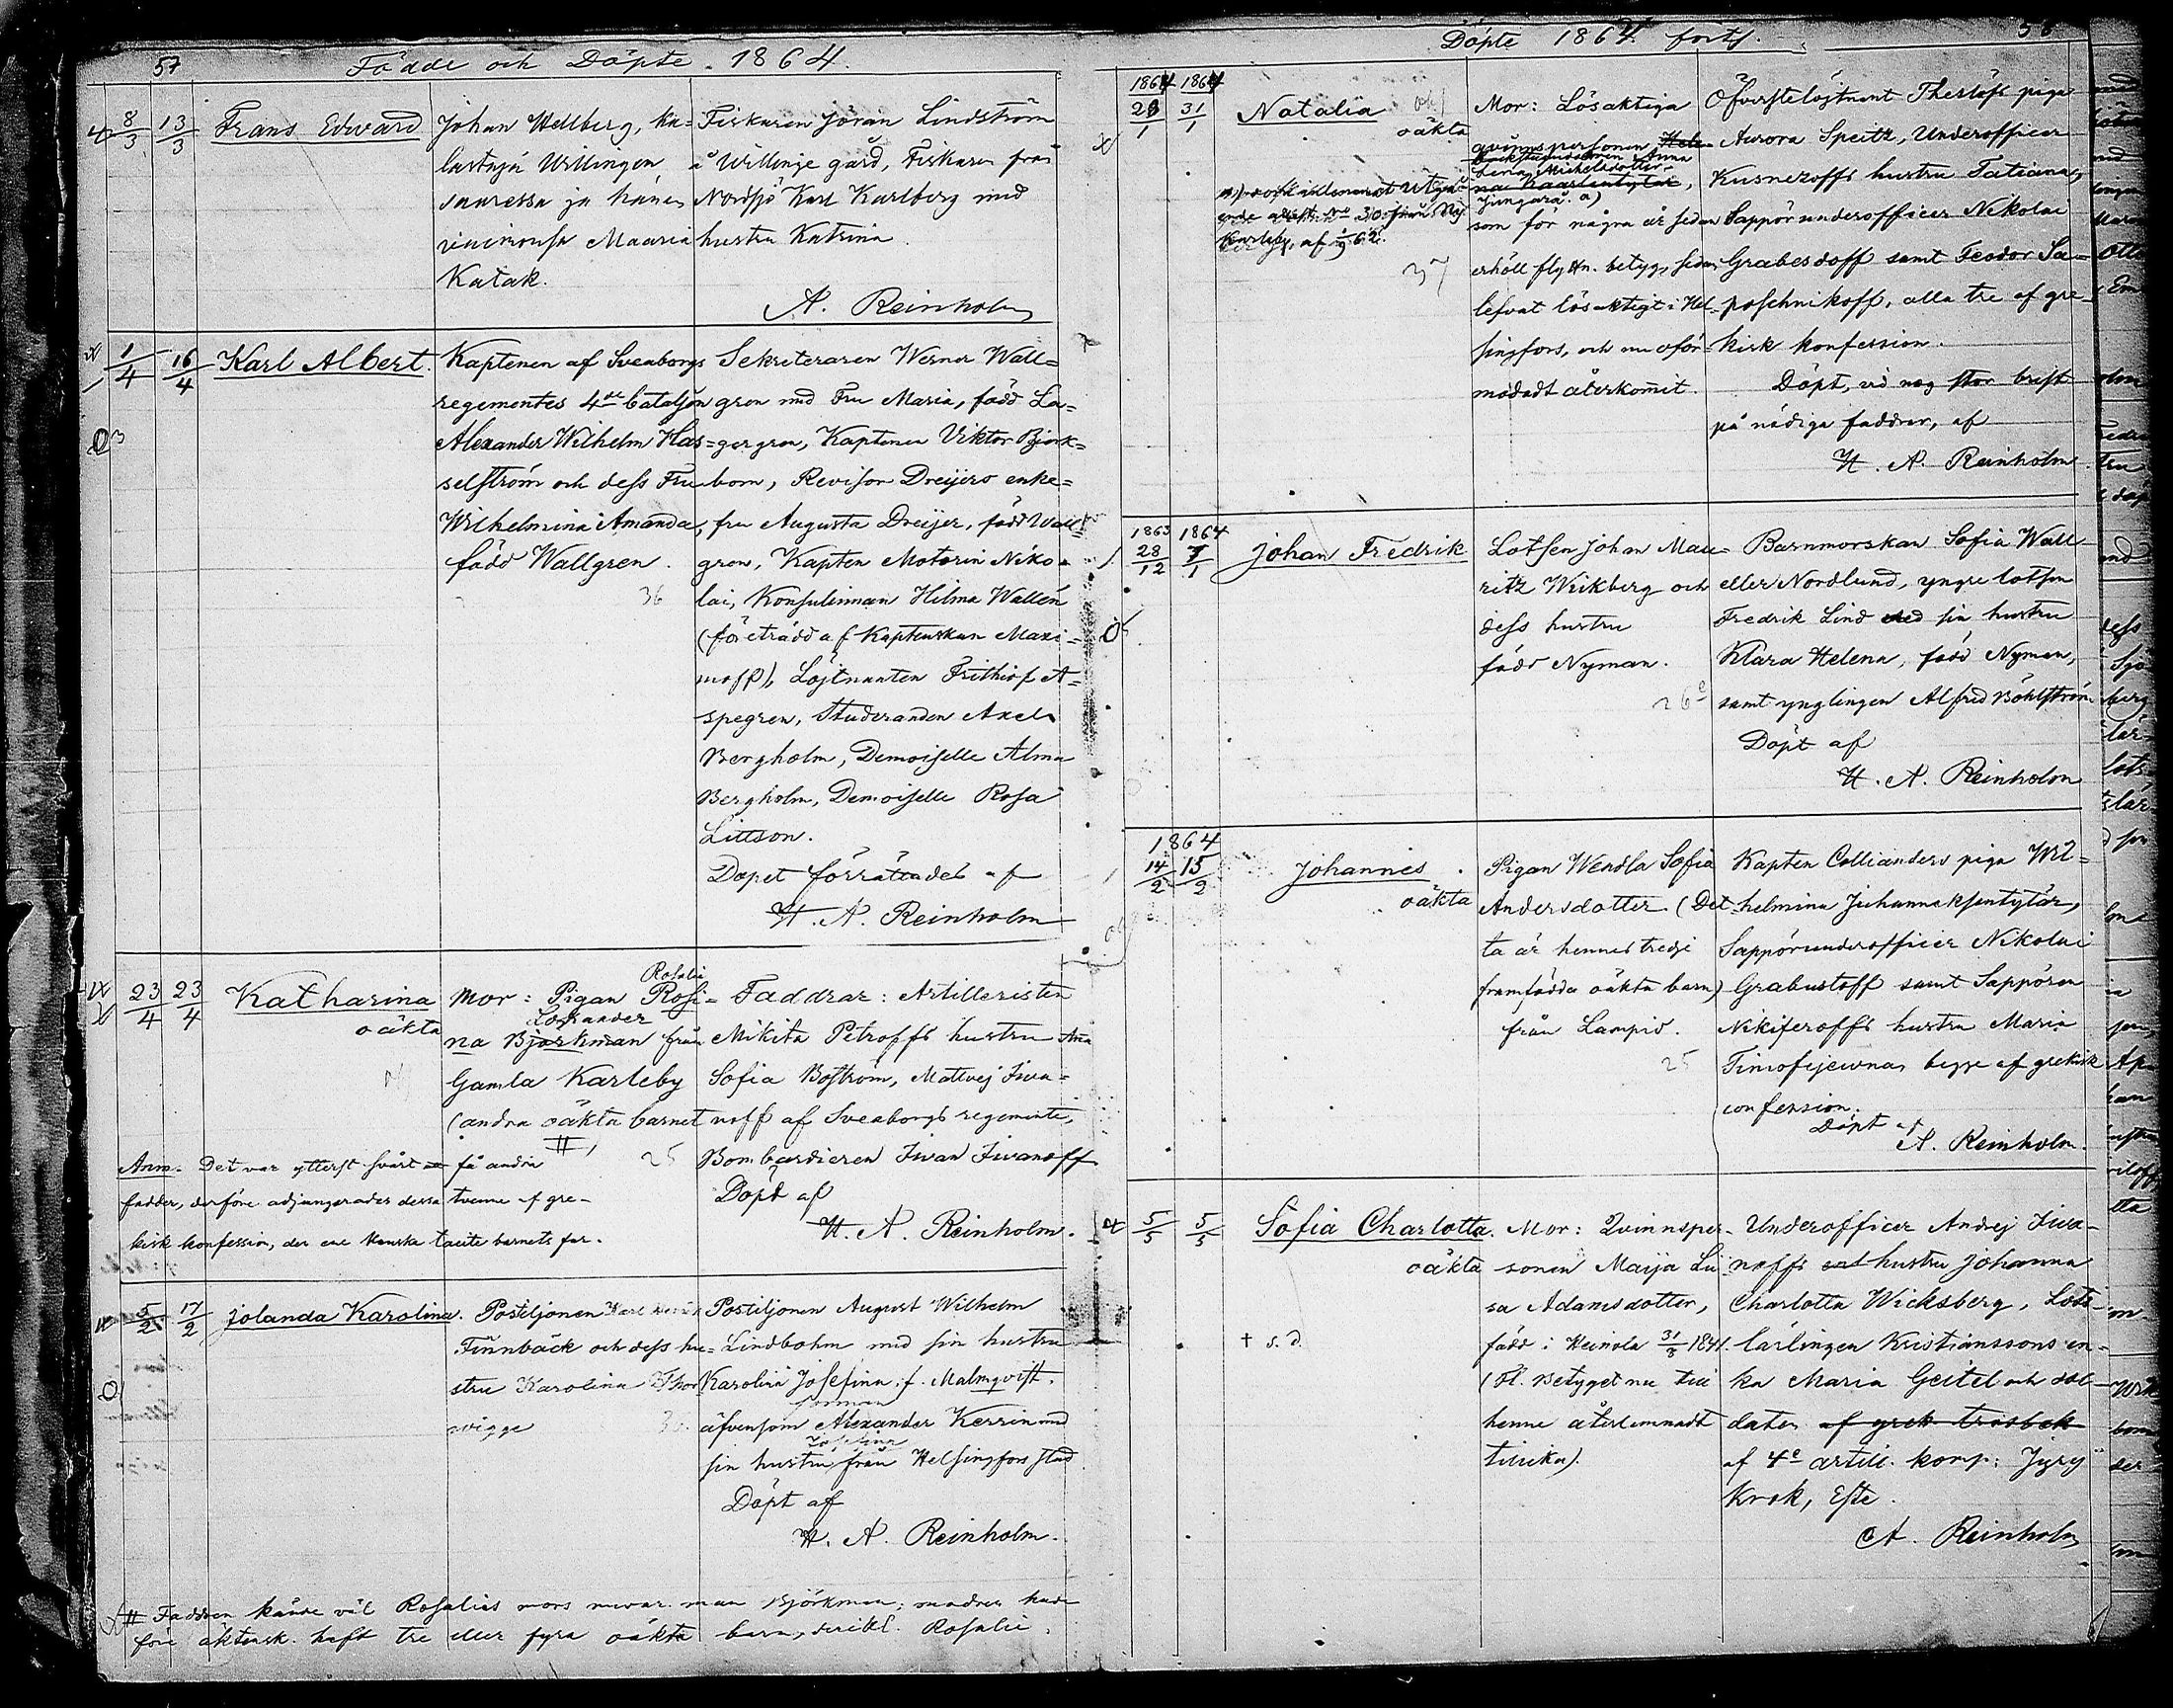 57
Födde och Döpte. 1864.
8/3 13/3 Frans Edward
Johan Wellberg,
Willingen
saaressa ja hänen
Maaria
Katak.
Fiskaren Jöran Lindström
å Willinge gård, Fiskaren från
Nordsjö Karl Karlberg med
hustru Katrina.
A. Reinholm
1/4 16/4 Karl Albert.
Kaptenen af Sveaborgs
regementes 4de bataljon
Alexander Wilhelm Has=
selström och dess Fru
Wilhelmina Amanda,
född Wallgren.
36
Sekreteraren Werner Wall=
gren med Fru Maria, född La=
gergren, Kaptenen Viktor Björk=
bom, Revisor Dreijers enke=
fru Augusta Dreijer, född Wall
gren, Kapten Motorin Niko=
lai, Konsulinnan Hilma Wallén
(företrädd af Kaptenskan Maxi=
moff), Löjtnanten Frithiof A=
spegren, Studeranden Axel
Bergholm, Demoiselle Alma
Bergholm, Demoiselle Rosa
Littson.
Dopet förrättades af
H. A. Reinholm
23/4 23/4 Katharina
oäkta
Rosalia
Mor: Pigan Rosi=
na Björkman från
Gamla Karleby
(andra oäkta barnet
25
Faddrar: Artilleristen
Mikita Petroffs hustru Ana
Sofia Boström, Mattvej Iwa=
noff af Sveaborgs regemente,
Bombardieren Iwan Iwanoff
Döpt af
H. A. Reinholm.
Anm. Det var ytterst svårt få andra
fadder, derföre adjungerades dessa tvenne af gre-
kisk konfession, der ene kanske barnets far.
5/2 17/2 Jolanda Karolina.
Postiljonen Karl
Finnbäck och dess hu=
stru Karolina Thor
wigge
Postiljonen August Wilhelm
Lindbohm med sin hustru
Karolina Josefina f. Malmqvist,
äfvensom Alexander Kerrin med
Josefina
sin hustru från Helsingfors stad
Döpt af
H. A. Reinholm.
# Faddren kände väl Rosalies mors man Björkman; modren hade
före äktensk. haft tre eller fyra oäkta barn, Rosalie.
58
Döpte 1864 forts.
1864 1864
28/1 31/1 Natalia
oäkta
37
Mor: Lösaktiga
qvinnspersonen
Anna
Lena Michelsdotter
Jungara. a)
som för några år sedan
erhöll flyttn. betyg, sedan
lefvat lösaktigt i Hel-
singfors, och nu oför-
modadt återkommit.
Öfverstelöjtnant Thesleffs piga
Aurora Speitz, Underofficer
Kusnezoffs hustru Tatiana,
Sappörunderofficer Nikolai
Grabesdoff samt Feodor Sa=
poschnikoff, alla tre af gre-
kisk konfession.
Döpt, vid nog stor brist
på nödiga faddrar, af
H. A. Reinholm.
1863 1864
28/12 7/1 Johan Fredrik
Lotsen Johan Mau=
ritz Wikberg och
dess hustru
född Nyman.
Barnmorskan Sofia Wall
eller Nordlund, yngre lotsen
Fredrik Lind med sin hustru
Klara Helena, född Nyman,
samt ynglingen Alfred Böhlström
Döpt af
H. A. Reinholm
1864
14/2 15/2 Johannes.
oäkta
Pigan Wendla Sofia
Andersdotter. (Det
ta är hennes tredje
framfödda oäkta barn)
från Lampis.
25
Kapten Collianders piga Wil=
helmina Juhannaksentytär,
Sappörunderofficer Nikolai
Grabustoff samt Sappören
Nikiferoffs hustru Maria
Timofejewna, begge af grekisk
confession.
Döpt af
A. Reinholm.
5/5 5/5 Sofia Charlotta.
oäkta
† s. d.
Mor: Qvinnsper-
sonen Maija Lii
sa Adamsdotter,
född i Heinola 31/8 1841.
(Fl. Betyget nu till
henne återlemnadt
Underofficer Andrej Iwa-
noffs hustru Johanna
Charlotta Wicksberg, Lots-
lärlingen Kristianssons en-
ka Maria Geitel och sol-
daten af grek trosbek
af 4e artill. komp: Jyrij
Krok, Este.
A. Reinholm